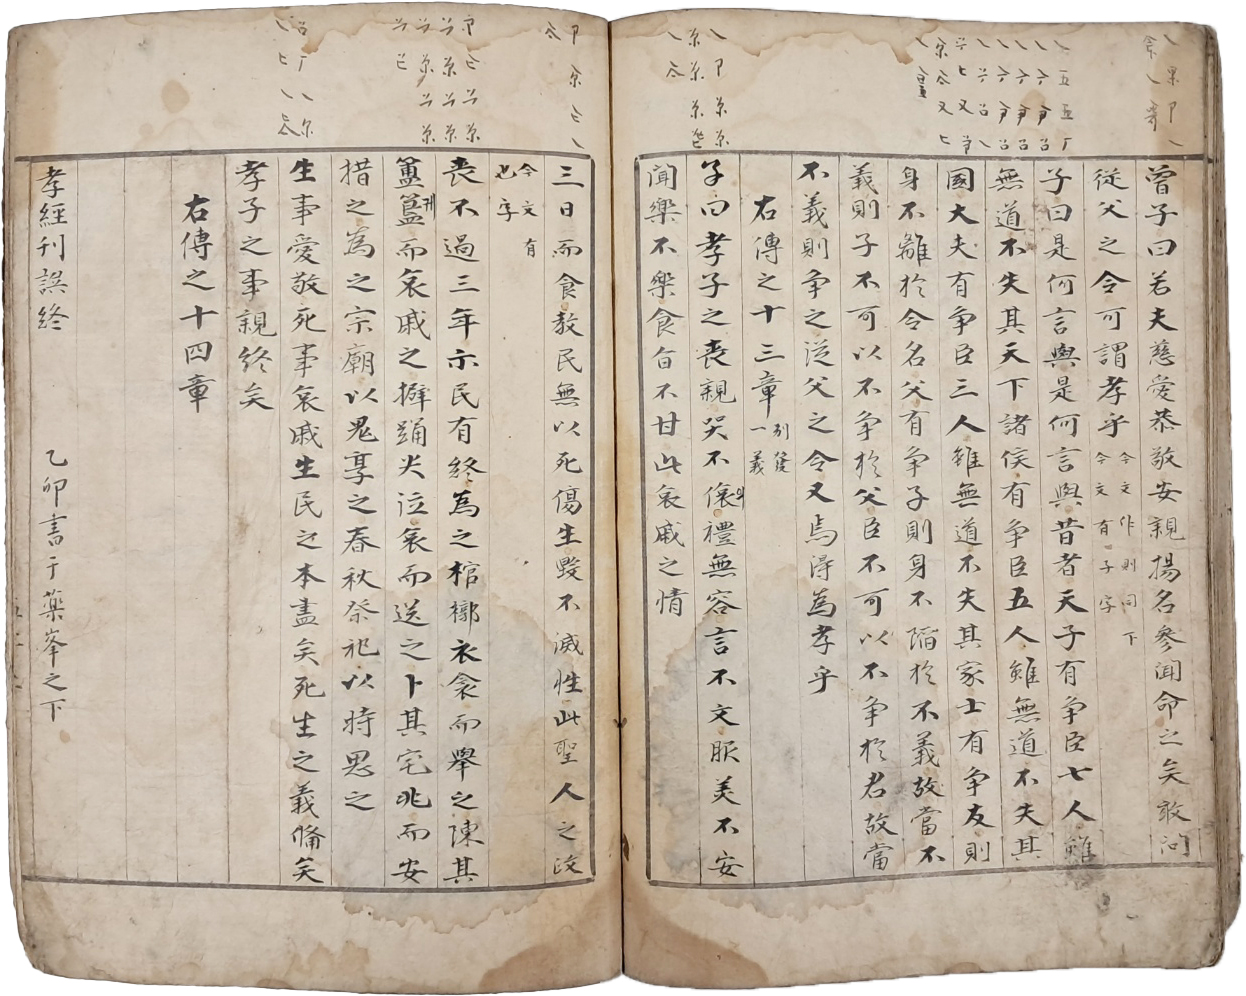 曾子曰若夫慈愛恭敬安親揚名參聞命之矣敢问
從父之令可謂孝乎今文作則问下
今文有子字
子曰是何言與是何言與昔者天子有争臣七人雖
無道不失其天下諸侯有争臣五人雖無道不失其
國大夫有争臣三人雖無道不失其家士有争友則
身不離於令名父有争子則身不陷於不義故當不
義則子不可以不争於父臣不可以不争於君故當
不義則争之従父之令又焉得為孝乎
右傳之十三章别發
一義
子曰孝子之丧親哭不偯禮無容言不文服美不安
聞樂不樂食旨不甘此哀戚之情
三日而食教民無以死傷生毀不滅性此聖人之政
今文有
也字
丧不過三年示民有終為之棺槨衣衾而舉之陳其
簠簋而哀戚之擗踊哭泣哀而送之卜其宅兆而安
措之為之宗廟以鬼享之春秋祭祀以時思之
生事愛敬死事哀戚生民之本盡矣死生之義俻矣
孝子之事親終矣
右傳之十四章
孝經刊誤終 乙卯書于藥峯之下